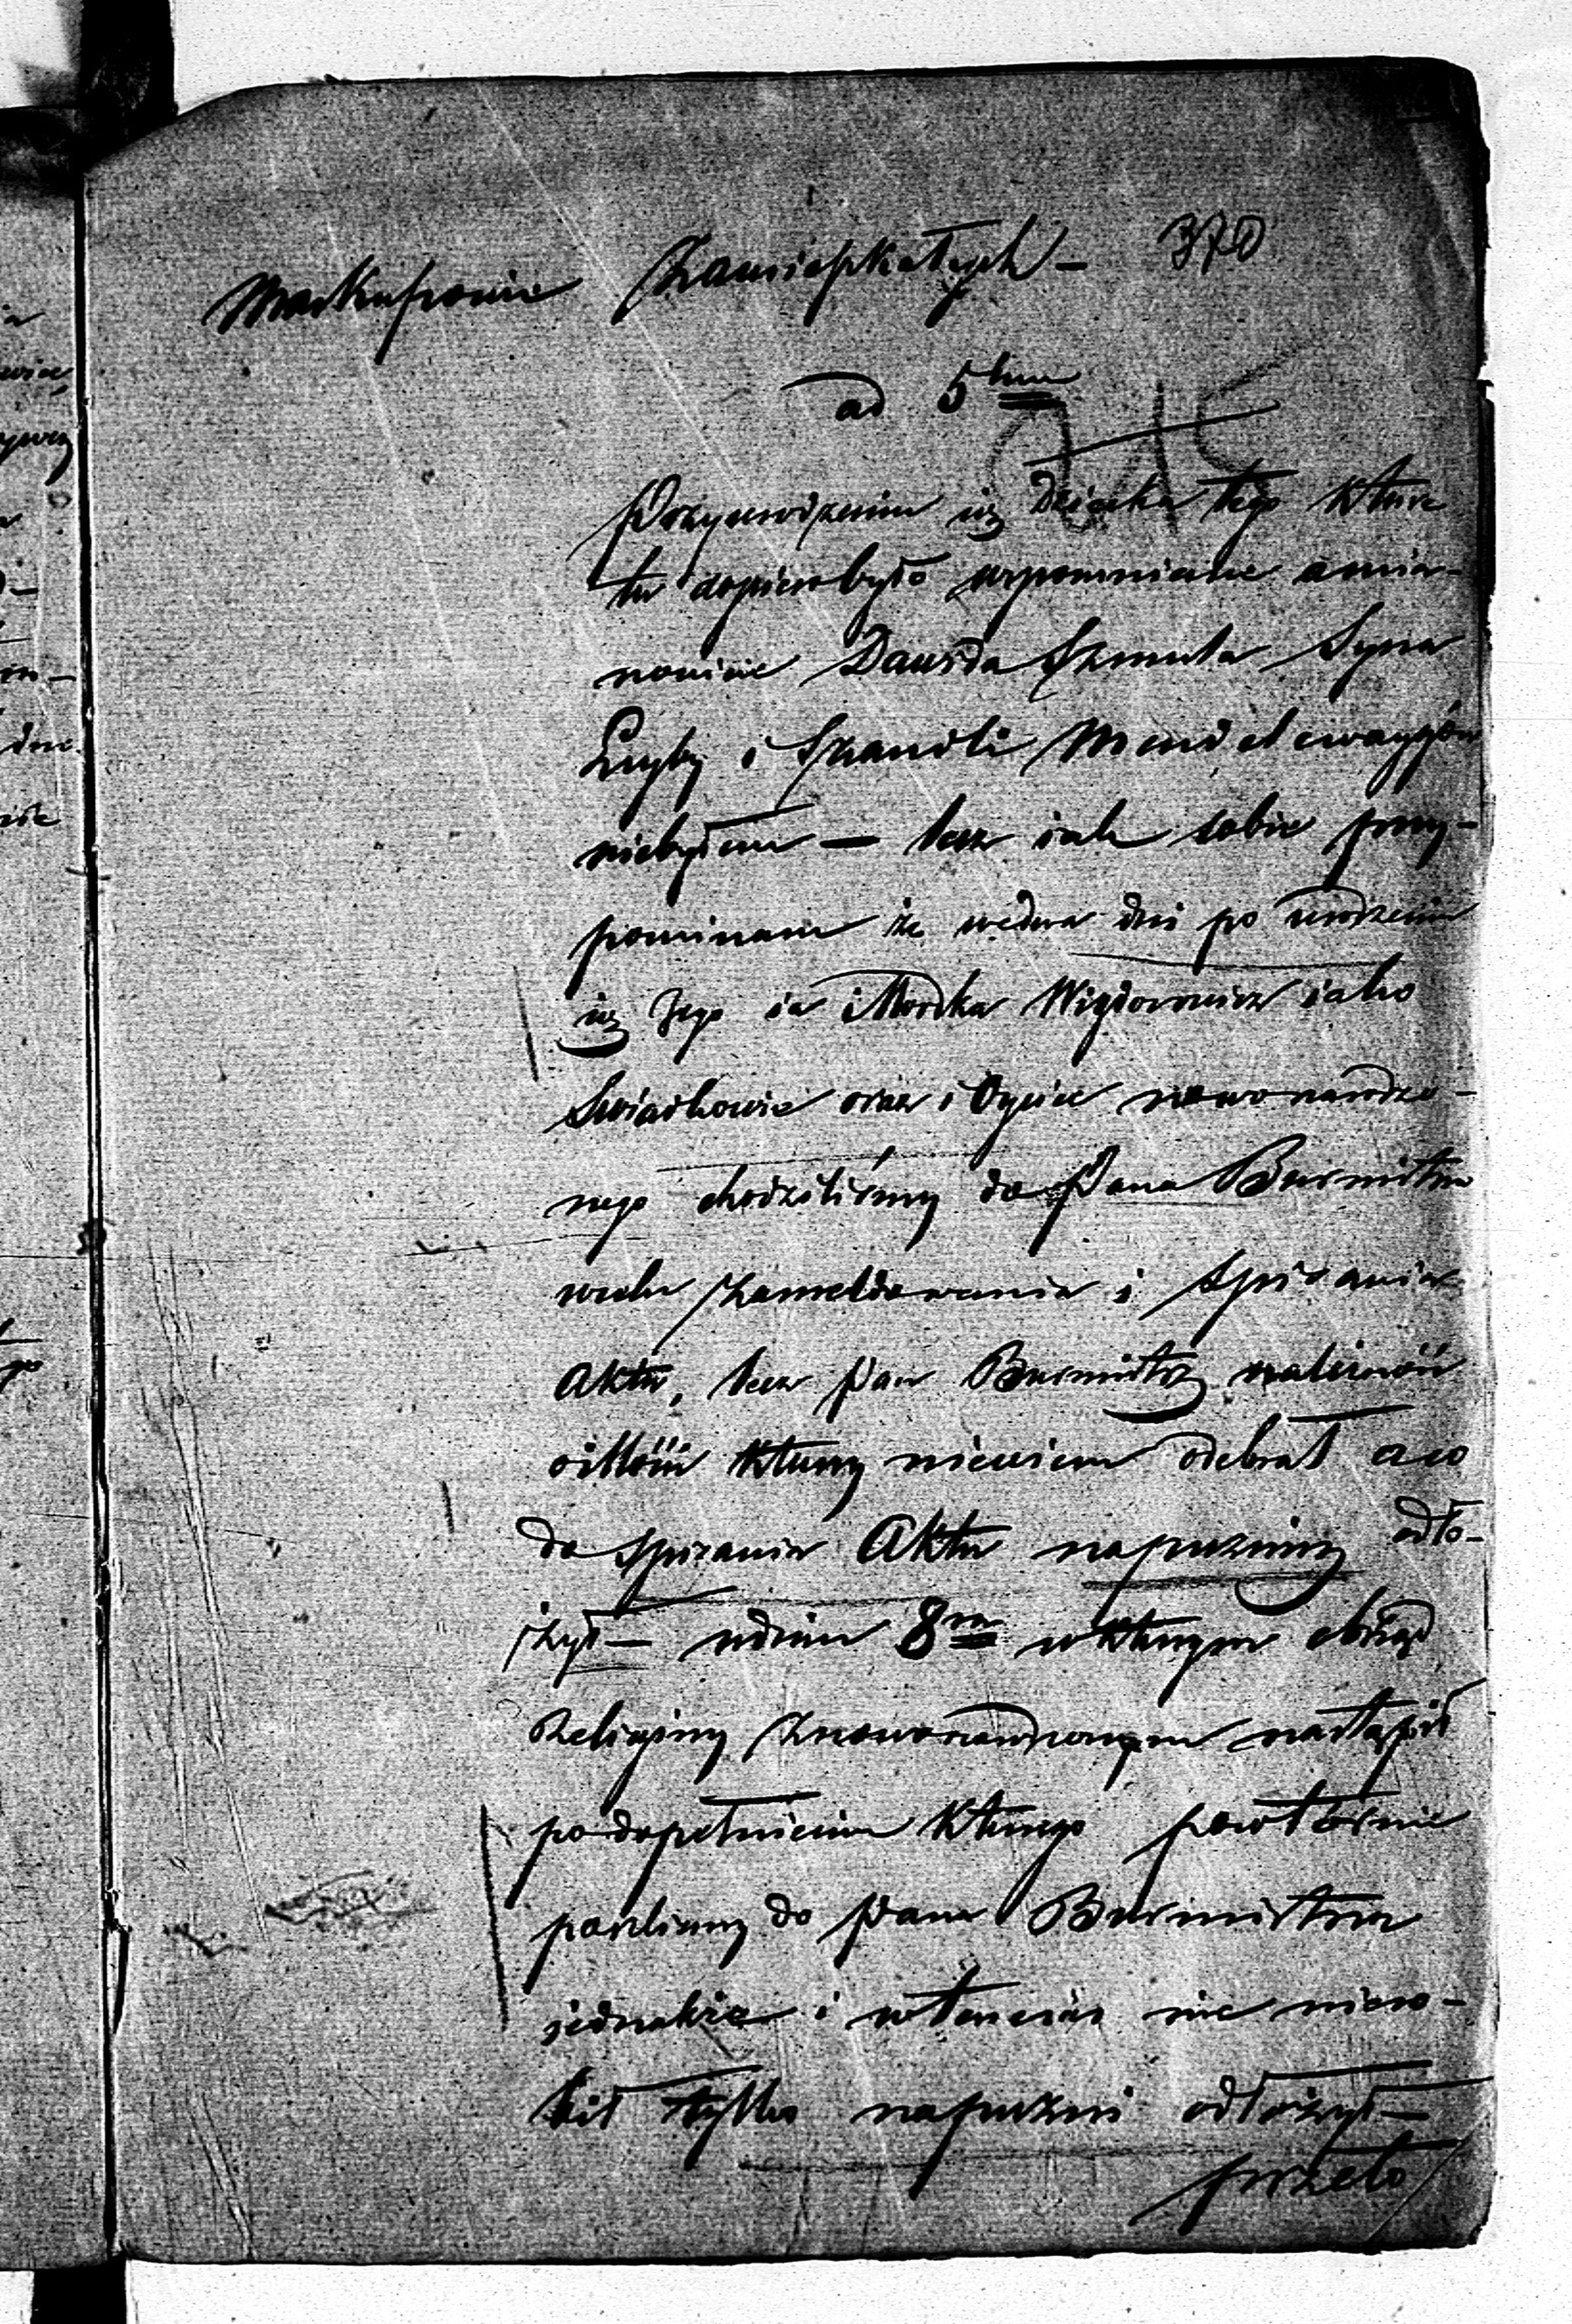 Markuszowie Zamieszkałych — 370
ad 5tum
Przyurodzeniu iuż Dziecka tego które
tu dopiero było wspomniane a mia-
nowicie Dawida Szmula Syna
Leyby i Szandli Mendelewaygów
niebyłem — lecz iak sobie przy-
pominam że wedwa dni po urodzeniu
iuż Jego ia i Mordka Wigdorowicz iako
Swiadkowie oraz i Oyciec nowonarodzo-
nego chodziliśmy do Pana Burmistrza
wcelu zameldowania i Spisania
Aktu, lecz Pan Burmistrz należność
wilości którey niewiem odebrał a co
do spisania Aktu napuzniey odło-
żył — w dniu 8m w którym obrząd
Religiny z nowonarodzonym nastąpił
podopełnieniu którego powtórnie
poszliśmy do Pana Burmistrza
jednakże i wtenczas nic niero-
bił tylko napuzni odłożył —
przeto